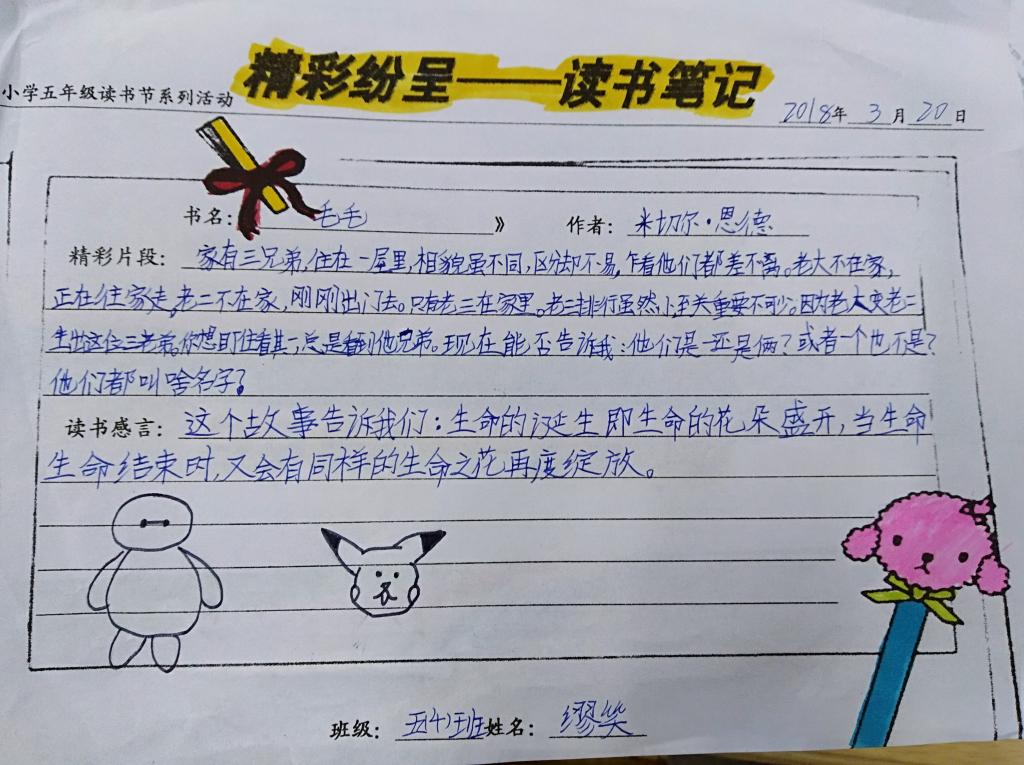 精彩纷呈——读书笔记
小学五年级读书节系列活动
2018年 3 月 20 日
书名： 毛毛 》 作者： 米切尔·恩德
精彩片段： 家有三兄弟,住在一屋里,相貌虽不同,区分却不易,乍看他们都差不离。老大不在家,
正在往家走。老二不在家,刚刚出门去。只有老三在家里。老三排行虽然小,至关重要不可少。因为老大变老二
生出这位三老弟。你想盯住看其一,总是看到他兄弟。现在能否告诉我:他们是一还是俩?或者一个也不是?
他们都叫啥名字?
读书感言： 这个故事告诉我们:生命的诞生即生命的花朵盛开,当生命
生命结束时,又会有同样的生命之花再度绽放。
班级： 五(4)班 姓名： 缪笑